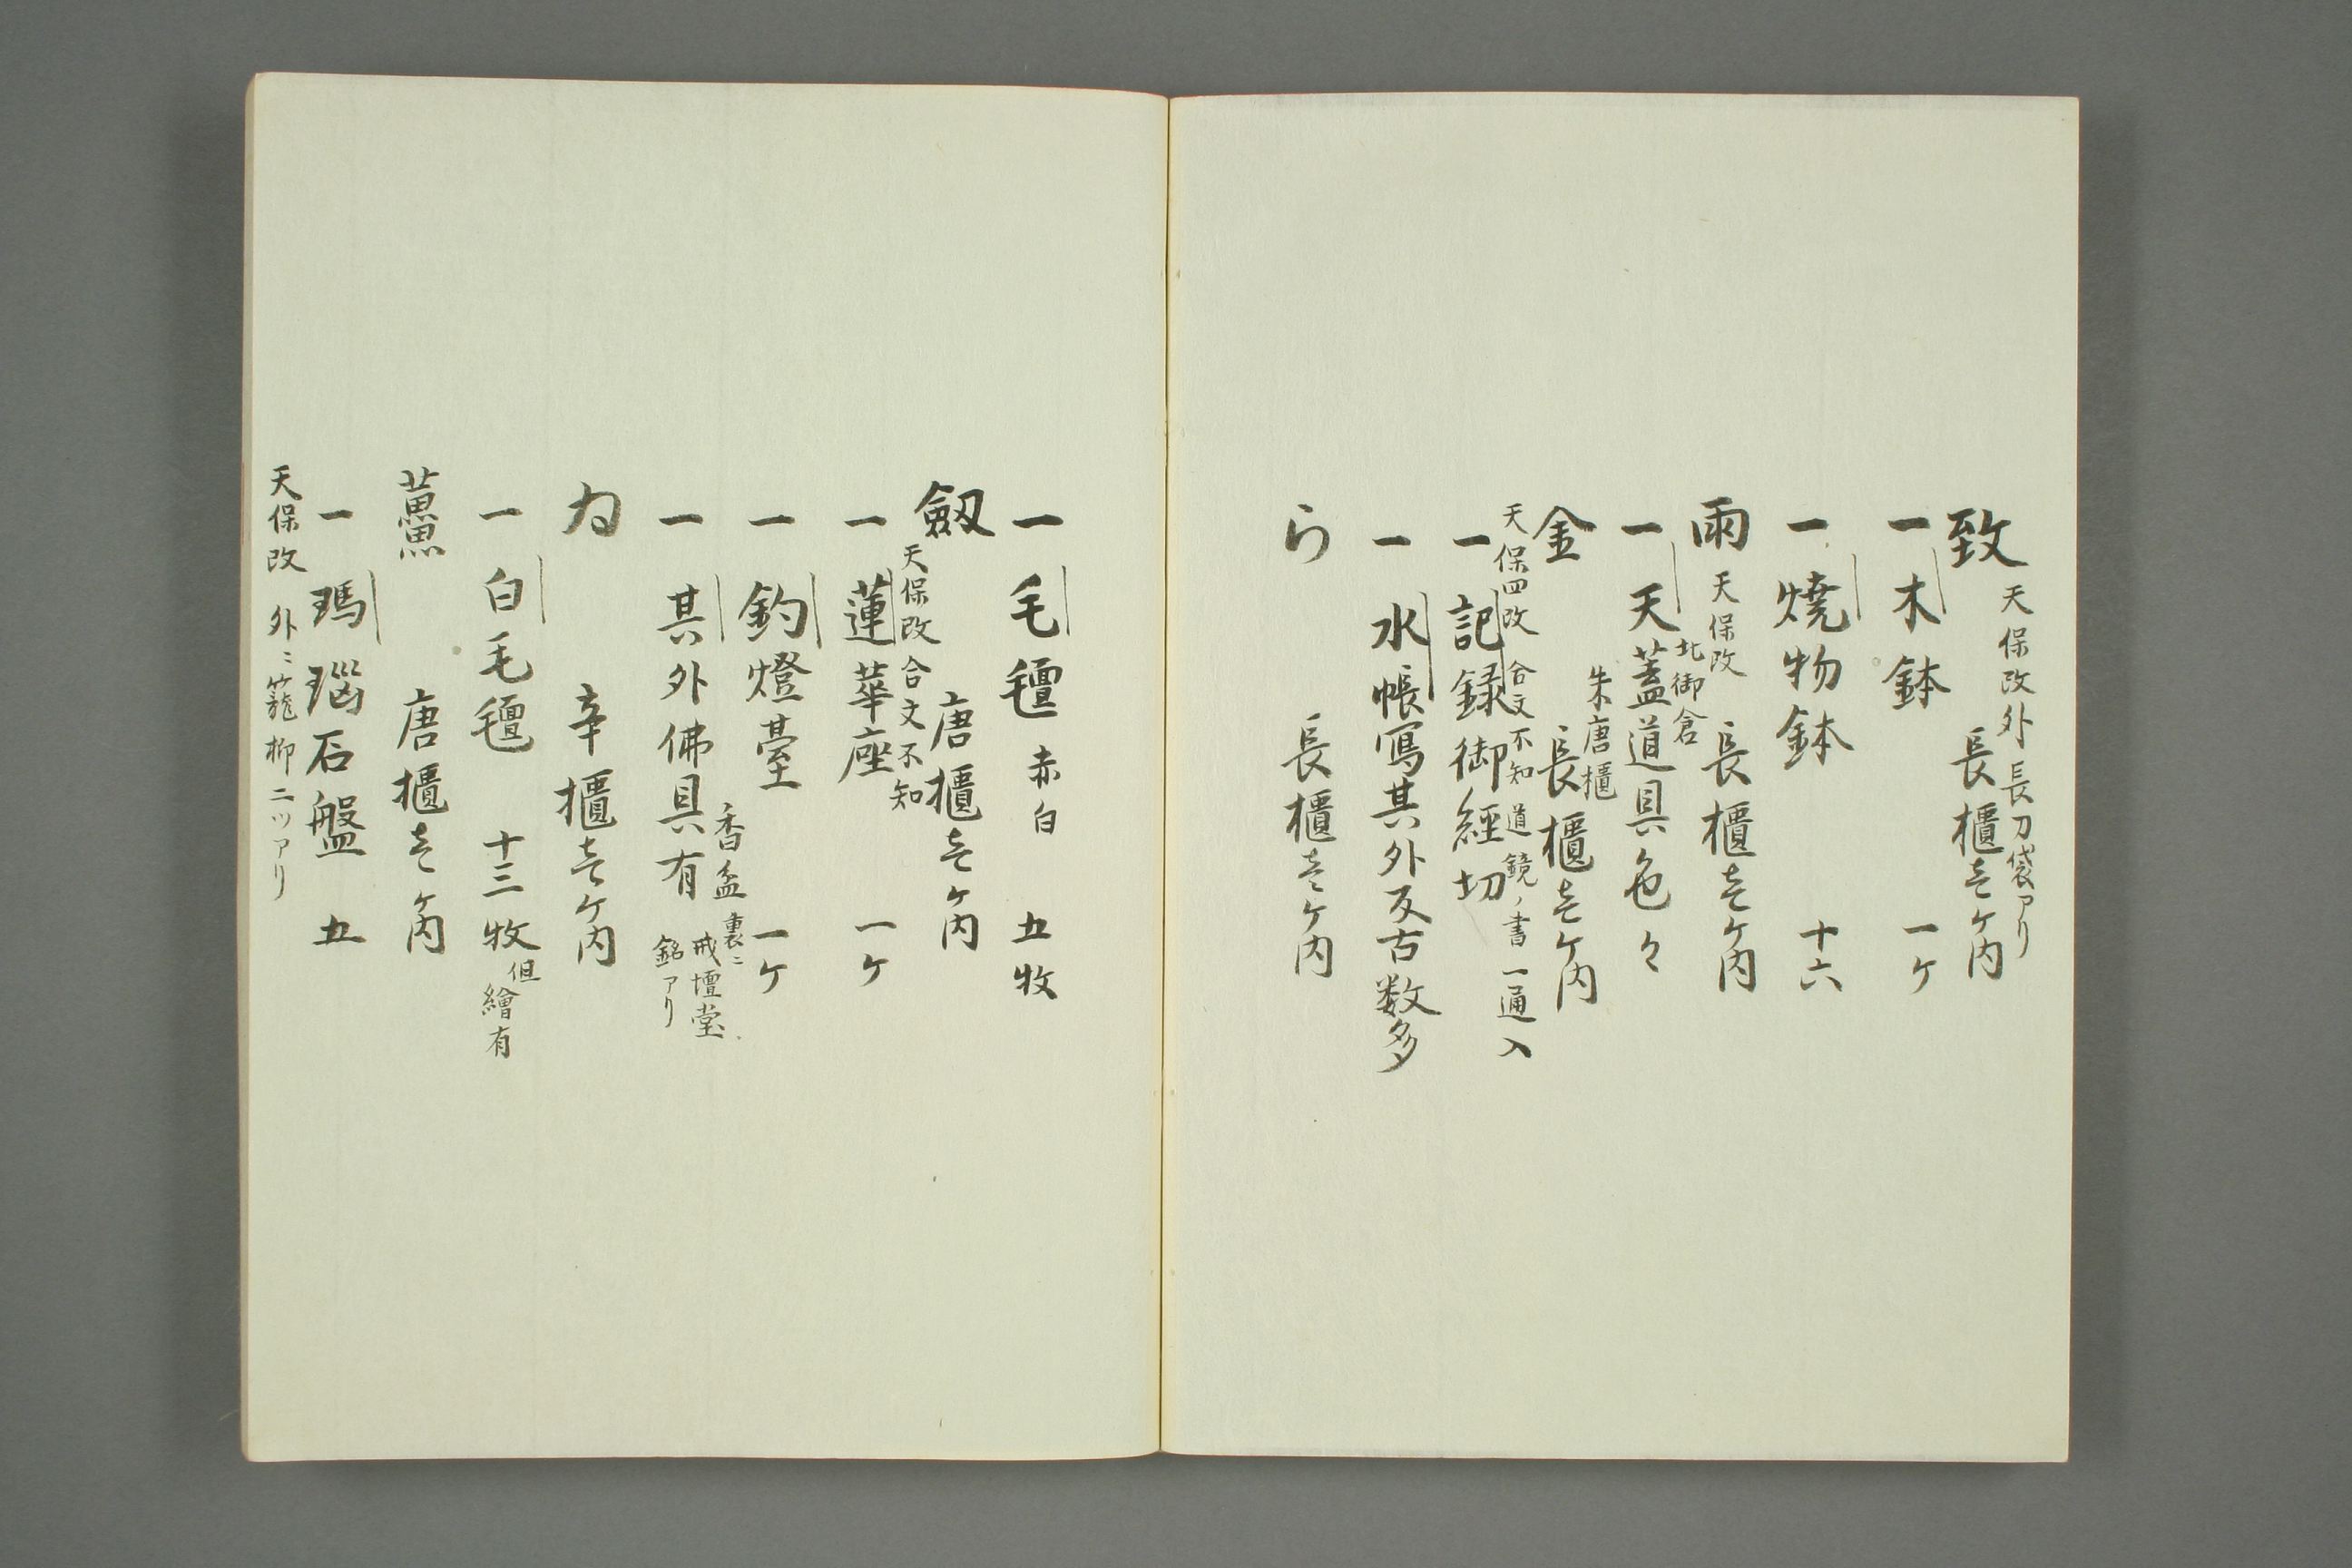 天保改外長刀袋アリ
致　長櫃壱ケ内
一木鉢　一ケ
一焼物鉢　十六
天保改
雨　長櫃壱ケ内
北御倉
一天蓋道具色々
朱唐櫃
金　長櫃壱ケ内
天保四改 合文不知 道鏡ノ書一通入
一記録御經切
一水帳寫其外反古数多
ら　長櫃壱ケ内
一毛氈 赤白 五枚
劔　唐櫃壱ケ内
天保改 合文不知
一蓮華座　一ケ
一釣燈臺　一ケ
香盆 裏ニ
戒壇堂
銘アリ
一其外佛具有
為　辛櫃壱ケ内
一白毛氈　十三牧 但繪有
薫　唐櫃壱ケ内
一瑪瑙石盤　五
天保改 外ニ籠柳二ツアリ